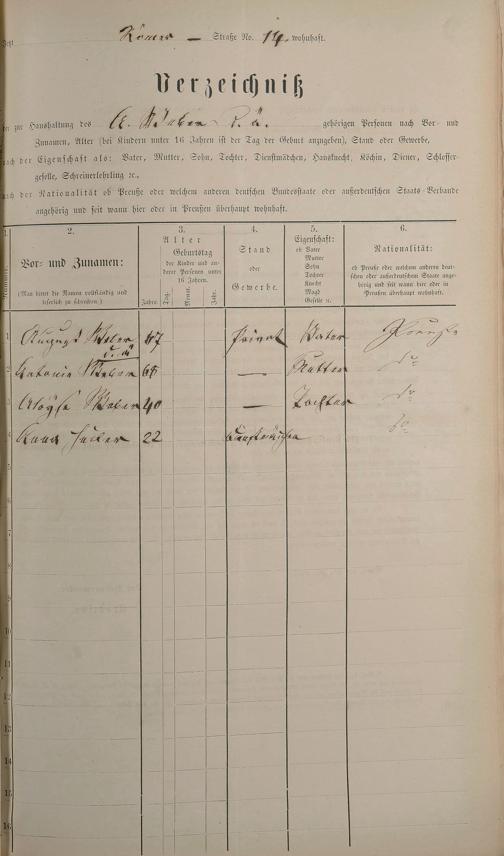 Jetzt Römer – Straße No. 14. wohnhaft.
Verzeichniß
der zur Haushaltung des A. Weber d. ä. gehörigen Personen nach Vor- und
Zunamen, Alter (bei Kindern unter 16 Jahren ist der Tag der Geburt anzugeben), Stand oder Gewerbe,
nach der Eigenschaft als: Vater, Mutter, Sohn, Tochter, Dienstmädchen, Hausknecht, Köchin, Diener, Schlosser-
geselle, Schreinerlehrling ꝛc.,
nach der Nationalität ob Preuße oder welchem anderen deutschen Bundesstaate oder außerdeutschen Staats-Verbande
angehörig und seit wann hier oder in Preußen überhaupt wohnhaft.
1. 2. 3. 4. 5. 6.
Nummer.
Vor- und Zunamen:
(Man bittet die Namen vollständig und
leserlich zu schreiben.)
Alter
Geburtstag
der Kinder und an-
derer Personen unter
16 Jahren.
Jahre. Tag. Monat. Jahr.
Stand
oder
Gewerbe.
Eigenschaft:
ob Vater
Mutter
Sohn
Tochter
Knecht
Magd
Geselle ꝛc.
Nationalität:
ob Preuße oder welchem anderen deut-
schen oder außerdeutschen Staate ange-
hörig und seit wann hier oder in
Preußen überhaupt wohnhaft.
1 August Weber 67 Privat Vater Preuße
d. ä.
2 Antonie Weber 66 — Mutter do
3 Aloyse Weber 40 — Tochter do
4 Anna 22 do
5
6
7
8
9
10
11
12
13
14
15
16